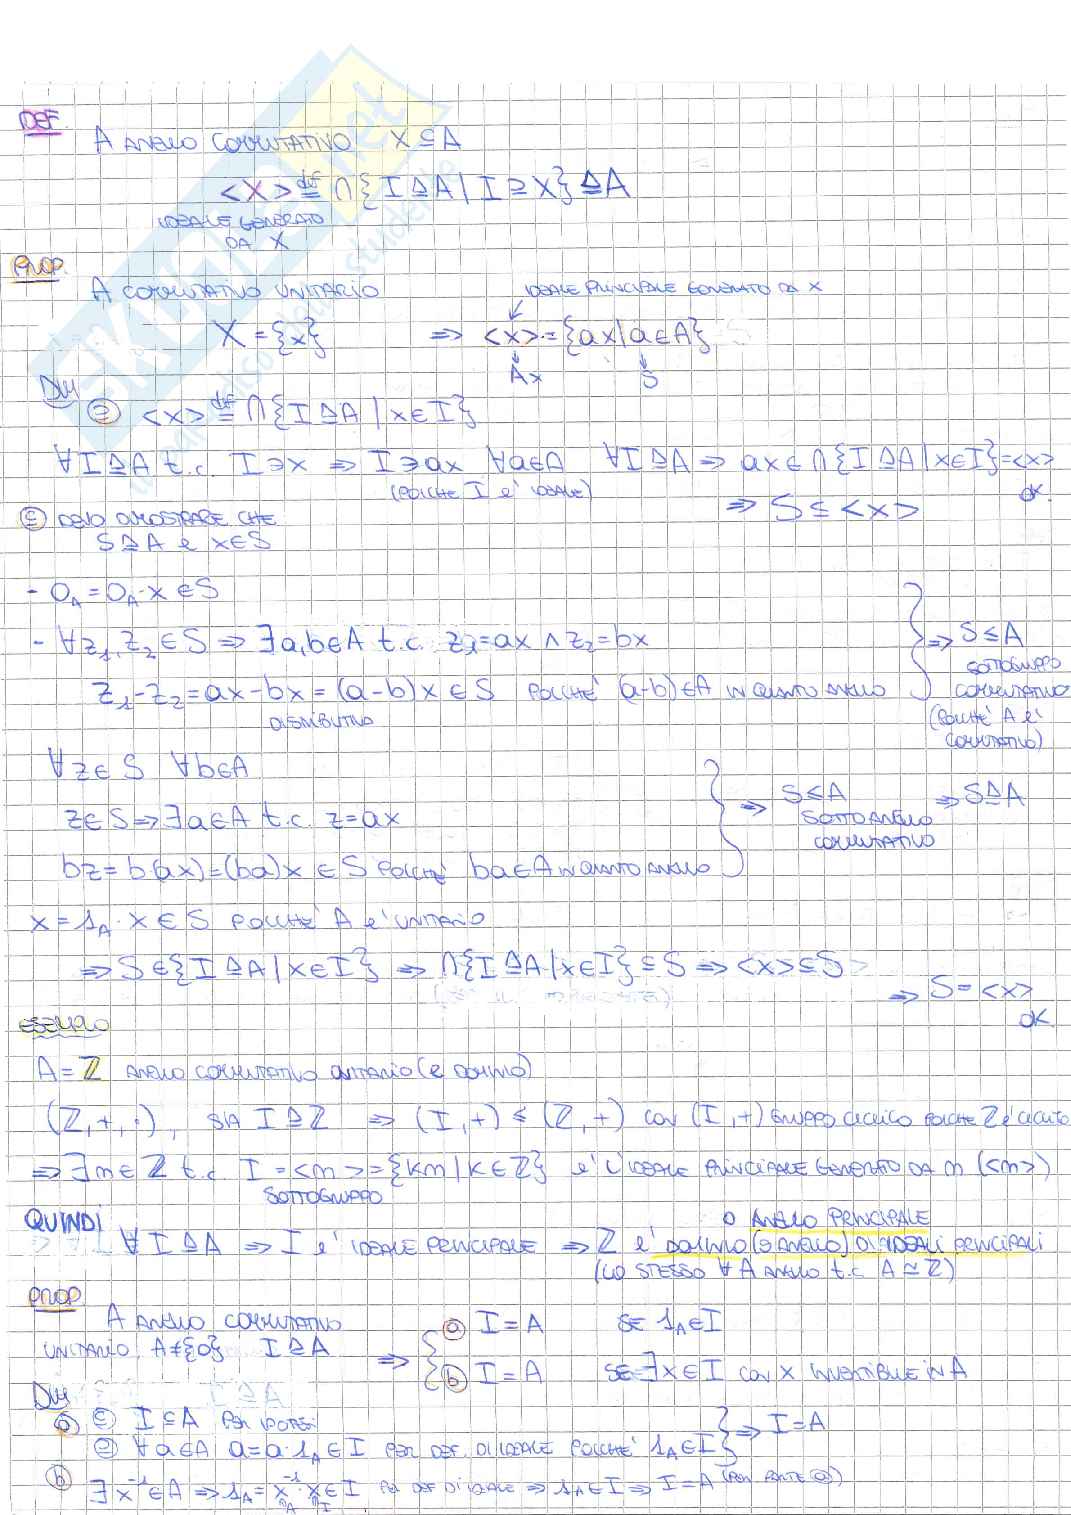 DEF.
A ANELLO COMMUTATIVO X ⊆ A
<X> ≝ ∩{I ⊴ A | I ⊇ X} ⊴ A
IDEALE GENERATO
DA X
PROP.
A COMMUTATIVO UNITARIO
IDEALE PRINCIPALE GENERATO DA X
X = {x} ⇒ <x> = {ax | a ∈ A}
Ax S
DIM
⊇ <x> ≝ ∩{I ⊴ A | x ∈ I}
∀ I ⊴ A t.c. I ∋ x ⇒ I ∋ ax ∀a ∈ A ∀ I ⊴ A ⇒ ax ∈ ∩{I ⊴ A | x ∈ I} = <x>
(POICHÉ I è IDEALE) OK.
⇒ S ⊆ <x>
⊆ DEVO DIMOSTRARE CHE
S ⊴ A e x ∈ S
- 0_A = 0_A · x ∈ S
- ∀ z₁, z₂ ∈ S ⇒ ∃ a, b ∈ A t.c. z₁ = ax ∧ z₂ = bx
z₁ - z₂ = ax - bx = (a - b)x ∈ S POICHÉ (a-b) ∈ A IN QUANTO ANELLO
DISTRIBUTIVA
⇒ S ≤ A
SOTTOGRUPPO
COMMUTATIVO
(POICHÉ A è
COMMUTATIVO)
∀ z ∈ S ∀ b ∈ A
z ∈ S ⇒ ∃ a ∈ A t.c. z = ax
bz = b·(ax) = (ba)x ∈ S POICHÉ ba ∈ A IN QUANTO ANELLO
⇒ S ≤ A ⇒ S ⊴ A
SOTTOANELLO
COMMUTATIVO
x = 1_A · x ∈ S POICHÉ A è UNITARIO
⇒ S ∈ {I ⊴ A | x ∈ I} ⇒ ∩{I ⊴ A | x ∈ I} ⊆ S ⇒ <x> ⊆ S
⇒ S = <x>
OK.
ESEMPIO
A = ℤ ANELLO COMMUTATIVO UNITARIO (e DOMINIO)
(ℤ, +, ·), SIA I ⊴ ℤ ⇒ (I, +) ≤ (ℤ, +) CON (I, +) GRUPPO CICLICO POICHÉ ℤ è CICLICO
⇒ ∃ m ∈ ℤ t.c. I = <m> = {km | k ∈ ℤ} è L'IDEALE PRINCIPALE GENERATO DA m (<m>)
SOTTOGRUPPO
QUINDI
O ANELLO PRINCIPALE
∀ I ⊴ A ⇒ I è IDEALE PRINCIPALE ⇒ ℤ è DOMINIO (o ANELLO) DI IDEALI PRINCIPALI
(LO STESSO ∀ A ANELLO t.c. A ≃ ℤ)
PROP
A ANELLO COMMUTATIVO
UNITARIO, A ≠ {0} I ⊴ A ⇒
a I = A SE 1_A ∈ I
b I = A SE ∃ x ∈ I CON X INVERTIBILE IN A
DIM
a ⊆ I ⊆ A PER IPOTESI
⊇ ∀ a ∈ A a = a · 1_A ∈ I PER DEF. DI IDEALE POICHÉ 1_A ∈ I
⇒ I = A
b ∃ x⁻¹ ∈ A ⇒ 1_A = x⁻¹ · x ∈ I PER DEF DI IDEALE ⇒ 1_A ∈ I ⇒ I = A (PER PUNTE a)
∈A ∈I